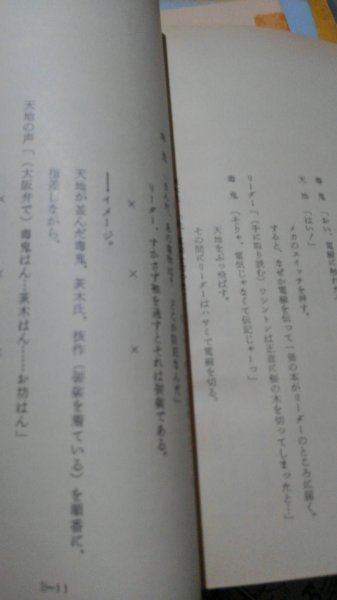 毒鬼「おい、電線に触れ
天地「はい!」
メカのスイッチを押す。
すると、なぜか電線を伝って一冊の本がリーダーのところに届く。
リーダー「(手に取り読む)ワシントンは正直に桜の木を切ってしまったと…」
毒鬼「そりゃ、電伝じゃなくて伝記じゃーっ」
天地をぶっとばす。
その間にリーダーはハサミで電線を切る。
リーダー、すかさず袖を通すとそれは袈裟である。
× × ×
――イメージ。
天地が並んだ毒鬼、茨木氏、抜作(袈裟を着ている)を順番に、
指差しながら、
天地の声「(大阪弁で)毒鬼はん…茨木はん……お坊はん」
× × ×
B-11